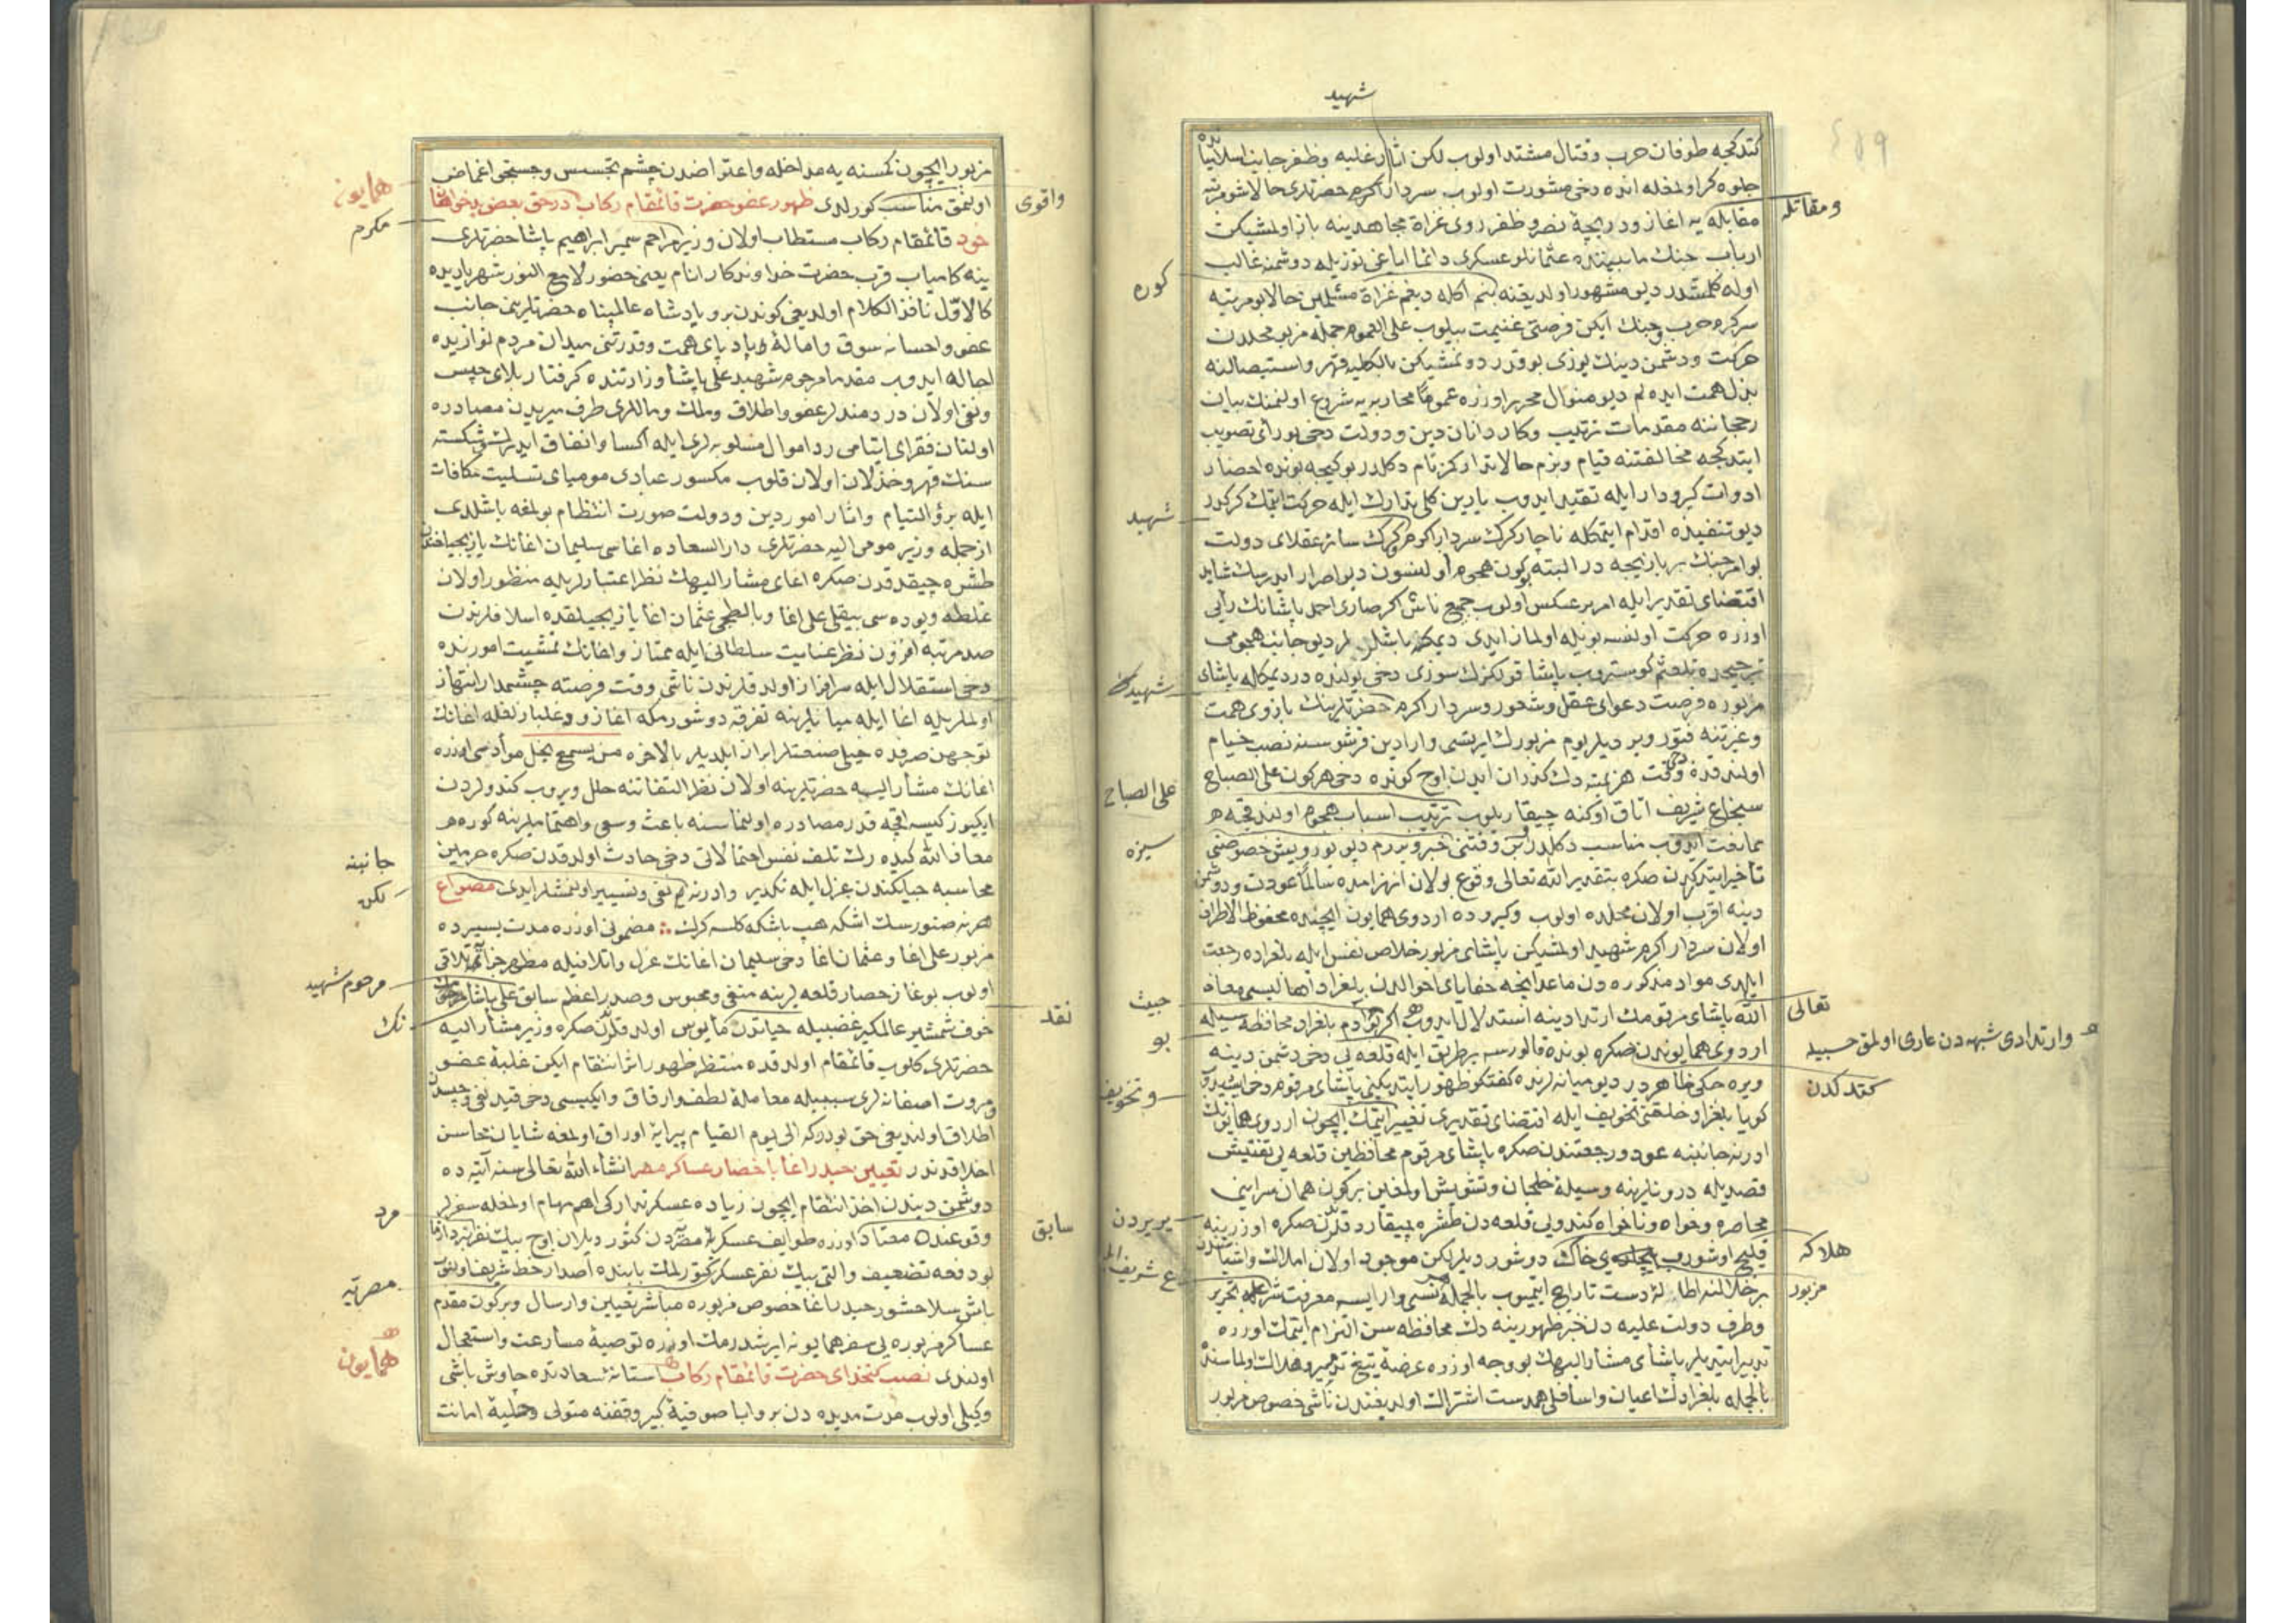 شهید
كتدكجه طوفان حرب وقتال مشتد اولوب لكن اثار غلبه وظفر جانب اسلامیانده
جلوه كر اولمغله انده دخی مشورت اولوب سردار اكرم حضرتلری حالا شو مرتبه
مقابله یه اغاز ودریچۀ نصر وظفر روی غزاة مجاهدینه باز اولمشیكن
ارباب جنك مابیننده عثمانلو عسكری دائما ایاغی توزیله دوشمنه غالب
اوله كلمشدر دیو مشهور اولدیغنه بنم اكله دیغم غزاة مسلمین حالا بو مرتبه
سركرم حرب وجنك ایكن فرصتی غنیمت بیلوب علی العموم جمله مز بو محلدن
حركت ودشمن دینك یوزی بو قدر دونمشیكن بالكلیه قهر واستیصالنه
بذل همت ایده لم دیو منوال محرر اوزره عموما محاربه یه شروع اولنمنك بیان
رجحاننه مقدمات ترتیب وكاردانان دین ودولت دخی بو رائی تصویب
ایتدكجه مخالفتنه قیام وبزم حالا تداركمز تام دكلدر بو كیجه بونده احضار
ادوات كیرودار ایله تقید ایدوب یارین كلی تدارك ایله حركت ایتمك كركدر
دیو تنفیذه اقدام ایتمكله ناچار كرك سردار اكرم وكرك سائر عقلای دولت
بو امر جنك بر بازیچه در البته بوكون هجوم اولنسون دیو اصرار ایدرسك شاید
اقتضای تقدیر ایله امر بر عكس اولوب جمیع ناس اكر صاری احمد پاشانك رأیی
اوزره حركت اولنسه بویله اولماز ایدی دیمكه باشلرلر دیو جانب هجومی
ترجیحده تلعثم كوستروب پاشا قولكزك سوزی دخی یولنده در دیمكله پاشای
مزبوره فرصت دعوای عقل وشعور وسردار اكرم حضرتلرینك بازوی همت
وغیرتنه فتور ویردیلر یوم مزبورك ایرتسی وارادین قرشوسنه نصب خیام
اولندقده وقت هزیمته دك كذران ایدن اوچ كونده دخی هر كون علی الصباح
سنجاغ شریف اتاق اوكنه چیقاریلوب ترتیب اسباب هجوم اولندقجه هر
ممانعت ایدوب مناسب دكلدر بن وقتنی خبر ویررم دیو
تأخیر ایتدكدن صكره بتقدیر الله تعالی وقوع بولان انهزامده سالما عودت ودوشمن
دینه اقرب اولان محلده اولوب وكیروده اردوی همایون ایچنده محفوظ الاطراف
اولان سردار اكرم شهید اولمشیكن پاشای مزبور خلاص نفس ایله بلغراده رجعت
ایلدی مواد مذكوره دن ماعدا نیجه خفایای احوالدن بلغراد اهالیسی معاذ
الله پاشای مرقومك ارتدادینه استدلال ایدوب اكر بو آدم بلغراد محافظه سیله
اردوی همایوندن صكره بونده قالورسه بر طریق ایله قلعه یی دخی دشمن دینه
ویره جكی ظاهردر دیو میانه لرنده كفتكو ظهور ایتدیكینی پاشای مرقوم دخی
كویا بلغراد خلقنی تخویف ایله اقتضای تقدیری تغییر ایتمك ایچون اردوی همایونك
ادرنه جانبنه عود ورجعتندن صكره پاشای مرقوم محافظین قلعه یی تفتیش
قصدیله درونلرینه وسیلۀ خلجان وتشویش اولمغین بر كون همان سراینی
محاصره وخواه وناخواه كندویی قلعه دن طشره چیقاردقلرندن صكره اوزرینه
قلیچ اوشوروب خاك دوشوردیلر لكن موجود اولان املاك واشیاسندن
بر خلالنه اطالۀ دست تاراج ایتمیوب بالجمله وارایسه معرفت شرعله تحریر
وطرف دولت علیه دن خبر ظهورینه دك محافظه سن التزام ایتمك اوزره
تدبیر ایتدیلر پاشای مشار الیهك بو وجه اوزره عرضۀ تیغ تدمیر وهلاك اولماسنده
بالجمله بلغرادك اعیان واسافلی همدست اشتراك اولدیغندن ناشی خصوص مزبور
ومقاتله
تعالی
وارتدادی شبهه دن عاری اولمق حسبیله
كتدكدن
هلاكه
مزبور
كوره
شهید
شهیدك
علی الصباح
سیزه
حیث
بو
وتخویف
یریردن
مزبور ایچون كمسنه یه مداخله واعتراضدن چشم تجسس وجستجی اغماض
اولنمق مناسب كورلدی ظهور عفو حضرت قائمقام ركاب در حق بعض بدخواهان
خود قائمقام ركاب مستطاب اولان وزیر مراحم سمیر ابراهیم پاشا حضرتلری
ینه كامیاب قرب حضرت خداوندكار انام یعنی حضور لامع النور شهریاریده
كالاول نافذ الكلام اولدیغی كوندن برو پادشاه عالمپناه حضرتلرینی جانب
عفو واحسانه سوق وامالۀ وبادپای همت وقدرتنی میدان مردم نوازیده
اجاله ایدوب مقدما مرحوم شهید علی پاشا وزارتنده كرفتار بلای حبس
ونفی اولان دردمندلر عفو واطلاق وملك وماللری طرف میریدن مصادره
اولنان فقرای ایتامی رد اموال مسلوبه لری ایله اكسا وانفاق ایدرك شكسته
سنك قهر وخذلان اولان قلوب مكسور عبادی مومیای تسلیت مكافات
ایله برؤ التیام واثار امور دین ودولت صورت انتظام بولمغه باشلدی
از جمله وزیر مومی الیه حضرتلری دار السعاده اغاسی سلیمان اغانك یازیجیلغندن
طشره چیقدقدن صكره اغای مشار الیهك نظر اعتبارلریله منظور اولان
غلطه ویوده سی بیقلی علی اغا وبالطجی عثمان اغا یازیجیلقده اسلافلرندن
صد مرتبه افزون نظر عنایت سلطانی ایله ممتاز واغانك تمشیت امورنده
دخی استقلال ایله سرافراز اولدقلرندن ناشی وقت فرصته چشمدار انتهاز
اولملریله اغا ایله میانلرینه تفرقه دوشورمكه اغاز وغلبازلغله اغانك
توجهن صرفده خیلی صنعتلر ابراز ایلدیلر بالاخره من یسمع یخل مؤداسی اوزره
اغانك مشار الیه حضرتلرینه اولان نظر التفاتنه خلل ویروب كندولردن
ایكیوز كیسه اقچه قدر مصادره اولنماسنه باعث وسعی واهتماملرینه كوره
معاذ الله كیده رك تلف نفس احتمالاتی دخی حادث اولدقدن صكره حرمین
محاسبه جیلكندن عزل ایله تكدیر وادرنه یه نفی وتسییر اولنمشلر ایدی مصراع
هر نه صنورسك اشكه هب باشكه كلسه كرك مضمونی اوزره مدت یسیرده
مزبور علی اغا وعثمان اغا دخی سلیمان اغانك عزل واتلافیله مظهر جزای تلاقی
اولوب بوغاز حصار قلعه لرینه منفی ومحبوس وصدر اعظم سابق علی پاشا مرحومك
خوف شمشیر عالمكیر غضبیله حیاتدن مأیوس اولدقلرندن صكره وزیر مشار الیه
حضرتلری كلوب قائمقام اولدقده منتظر ظهور اثر انتقام ایكن غلبۀ عفو
ومروت اصفانه لری سببیله معاملۀ لطف وارفاق وایكیسی دخی قید نفی وحبسدن
اطلاق اولندیغی حق بودركه الی یوم القیام پیرایۀ اوراق اولمغه شایان محاسن
اخلاقدندر تعیین حیدر اغا باحضار عساكر مصر انشاء الله تعالی سنه آتیه ده
دوشمن دیندن اخذ انتقام ایچون زیاده عسكر تداركی اهم مهام اولمغله سفرلر
وقوعنده معتاد اوزره طوایف عسكریۀ مصردن كتوردیلان اوچ بیك نفر
بو دفعه تضعیف والتی بیك نفر عسكر كتورلمك بابنده اصدار خط شریف اولنوب
باش سلاحشور حیدر اغا خصوص مزبوره مباشر تعیین وارسال وبر كون مقدم
عساكر مزبوره یی سفر همایونه ایرشدرمك اوزره توصیۀ مسارعت واستعجال
اولندی نصب كتخدای حضرت قائمقام ركاب استانۀ سعادتده چاوش باشی
وكیلی اولوب مدت مدیده دن برو ایا صوفیۀ كبیر وقفنه متولی وحلیۀ امانت
واقوی
نقد
سابق
همایون
مكرم
جانبنه
لكن
مرحوم شهید
نك
مرد
مصریه
همایون